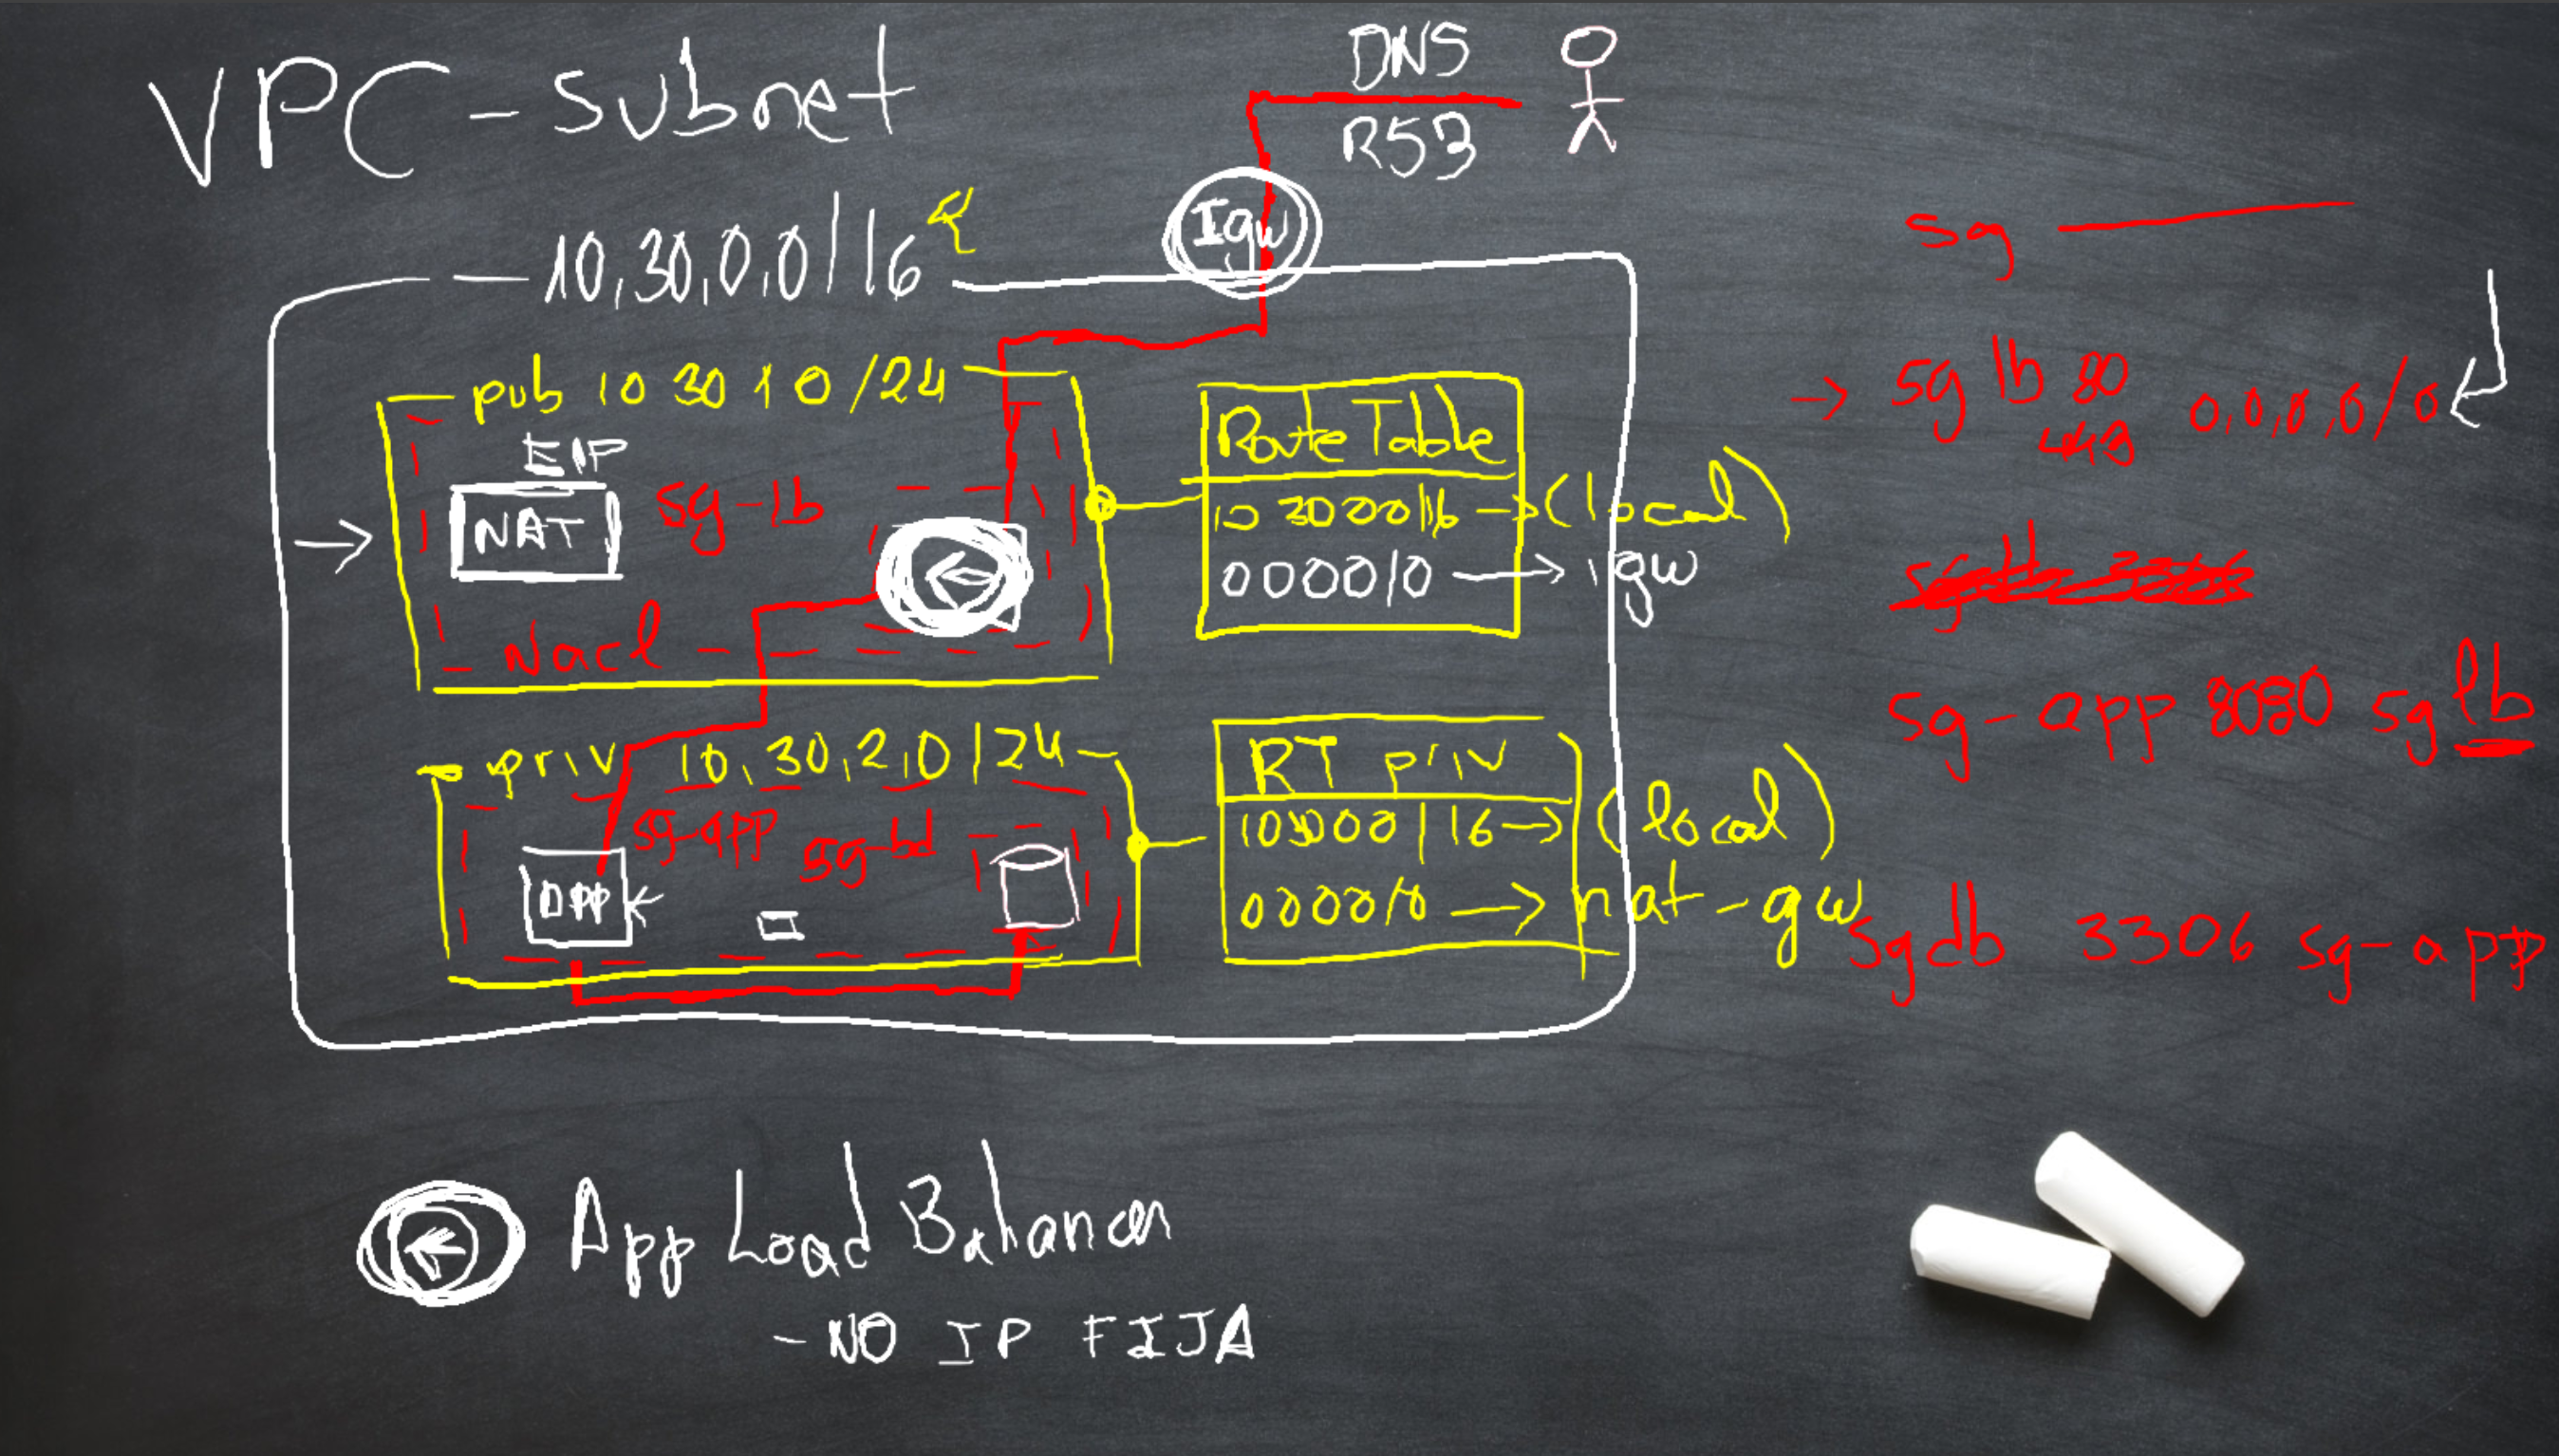 VPC - Subnet
DNS
R53
Igw
10,30,0,0/16
pub 10 30 10/24
EIP
NAT
sg-lb
Nacl
Route Table
10 30 00/16 → (local)
0000/0 → igw
priv 10,30,2,0/24
sg-app
sg-bd
app
RT priv
10 30 00/16 → (local)
0000/0 → nat-gw
sg
→ sg lb 80 0,0,0,0/0
443
sg-app 8080 sg lb
sg db 3306 sg-app
App Load Balancer
- NO IP FIJA